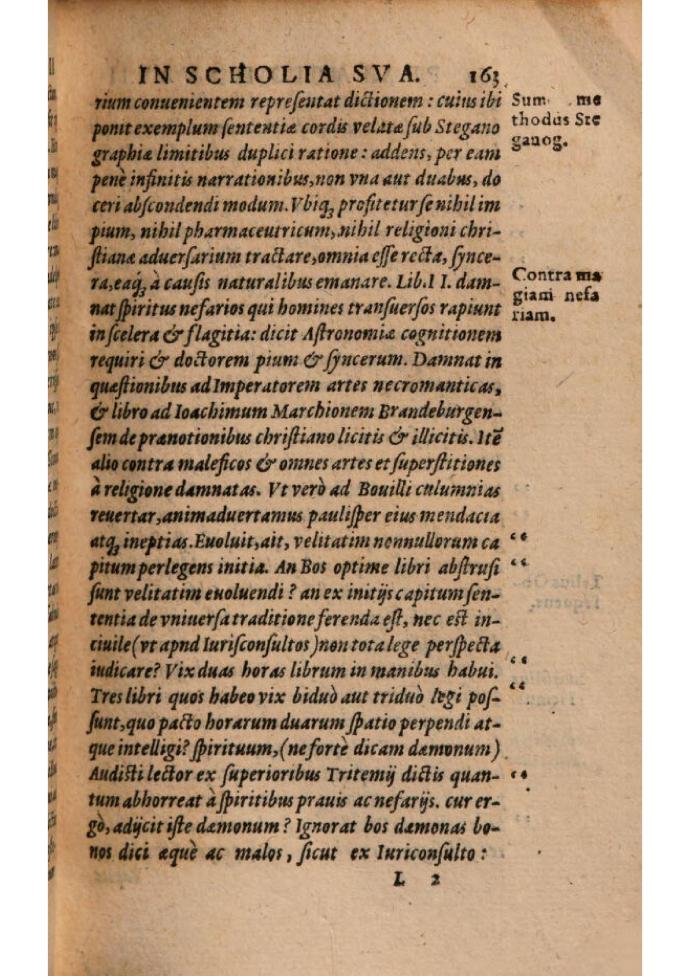 IN SCHOLIA SVA. 163
rium conuenientem repreſentat dictionem : cuius ibi
ponit exemplum ſententiæ cordis velatæ ſub Stegano
graphiæ limitibus duplici ratione : addens, per eam
penè infinitis narrationibus, non vna aut duabus, do
ceri abſcondendi modum. Vbiq; profitetur ſe nihil im
pium, nihil pharmaceutricum, nihil religioni chri-
ſtianæ aduerſarium tractare, omnia eſſe recta, ſynce-
ra, eaq; à cauſis naturalibus emanare. Lib. I I. dam-
nat ſpiritus nefarios qui homines tranſuerſos rapiunt
in ſcelera & flagitia: dicit Aſtronomiæ cognitionem
requiri & doctorem pium & ſyncerum. Damnat in
quæſtionibus ad Imperatorem artes necromanticas,
& libro ad Ioachimum Marchionem Brandeburgen-
ſem de prænotionibus chriſtiano licitis & illicitis. Itē
alio contra maleficos & omnes artes et ſuperſtitiones
à religione damnatas. Vt verò ad Bouilli calumnias
reuertar, animaduertamus pauliſper eius mendacia
atq; ineptias. Euoluit, ait, velitatim nonnullorum ca “
pitum perlegens initia. An Bos optime libri abſtruſi “
ſunt velitatim euoluendi ? an ex initijs capitum ſen-
tentia de vniuerſa traditione ferenda eſt, nec eſt in-
ciuile (vt apud Iuriſconſultos) non tota lege perſpecta
iudicare? Vix duas horas librum in manibus habui. “
Tres libri quos habeo vix biduò aut triduò legi poſ- “
ſunt, quo pacto horarum duarum ſpatio perpendi at-
que intelligi? ſpirituum, (ne fortè dicam dæmonum)
Audiſti lector ex ſuperioribus Tritemij dictis quan- “
tum abhorreat à ſpiritibus prauis ac nefarijs. cur er-
gò, adijcit iſte dæmonum ? Ignorat bos dæmonas bo-
nos dici æquè ac malos, ſicut ex Iuriconſulto :
L 2
Sum me
thodus Ste
ganog.
Contra ma
giam nefa
riam.